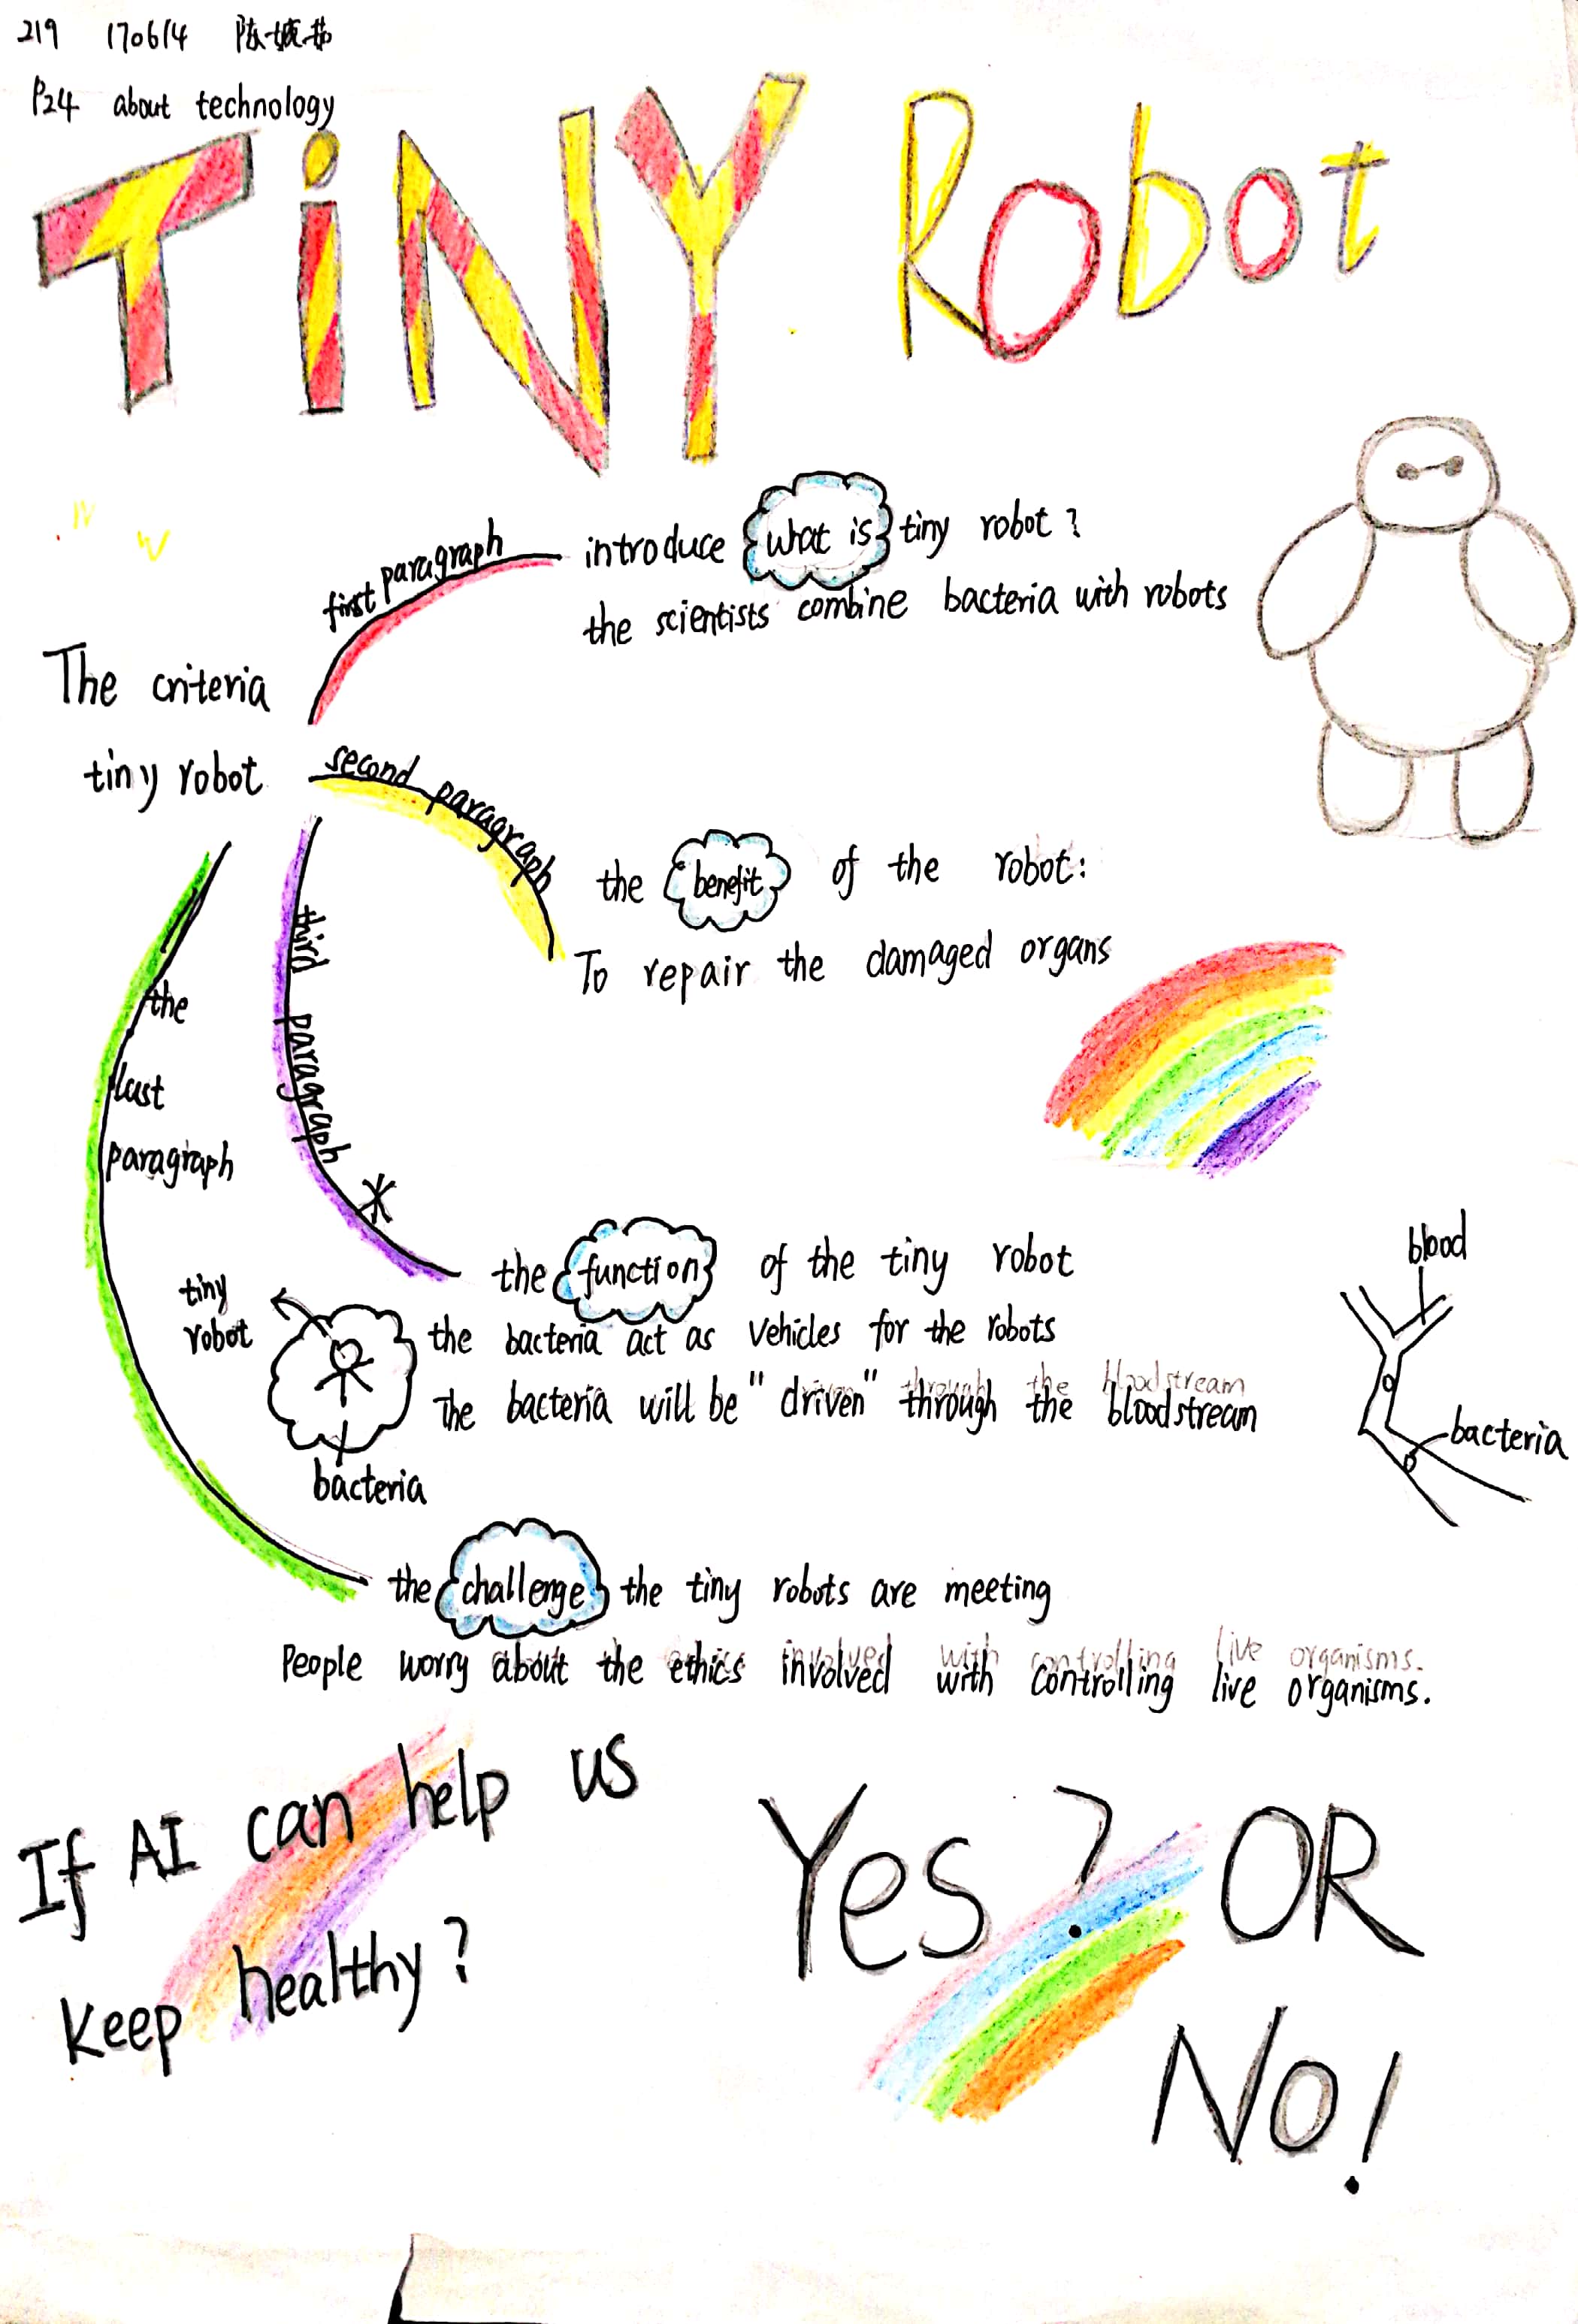 219 170614 陈婉茹
P24 about technology
TiNY Robot
first paragraph
introduce what is tiny robot?
the scientists combine bacteria with robots
The criteria
tiny robot
second paragraph
the benefit of the robot:
To repair the damaged organs
third paragraph
the
last
paragraph
the function of the tiny robot
the bacteria act as vehicles for the robots
The bacteria will be "driven" through the bloodstream
tiny
robot
bacteria
blood
bacteria
the challenge the tiny robots are meeting
People worry about the ethics involved with controlling live organisms.
If AI can help us
keep healthy?
Yes? OR
No!